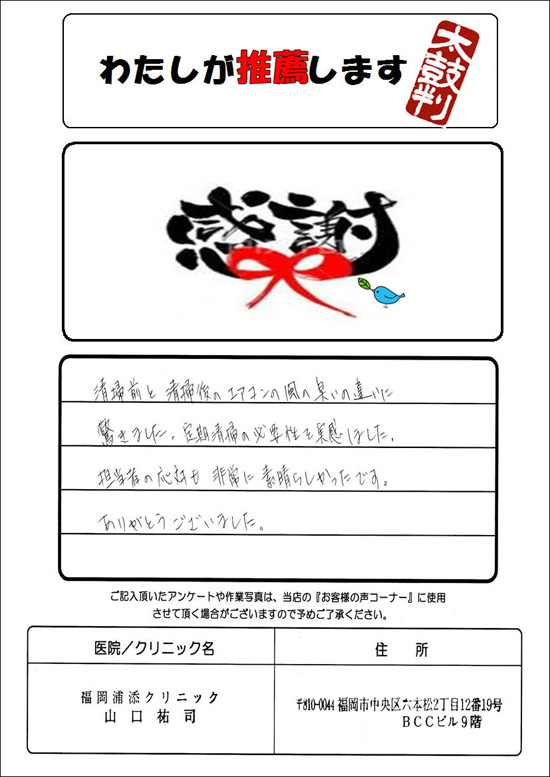 わたしが推薦します
太鼓判
感謝
清掃前と清掃後のエアコンの風の臭いの違いに
驚きました。定期清掃の必要性を実感しました。
担当者の応対も非常に素晴らしかったです。
ありがとうございました。
ご記入頂いたアンケートや作業写真は、当店の『お客様の声コーナー』に使用
させて頂く場合がございますので予めご了承ください。
医院／クリニック名
住 所
福岡浦添クリニック
山口祐司
〒810-0044 福岡市中央区六本松2丁目12番19号
BCCビル9階